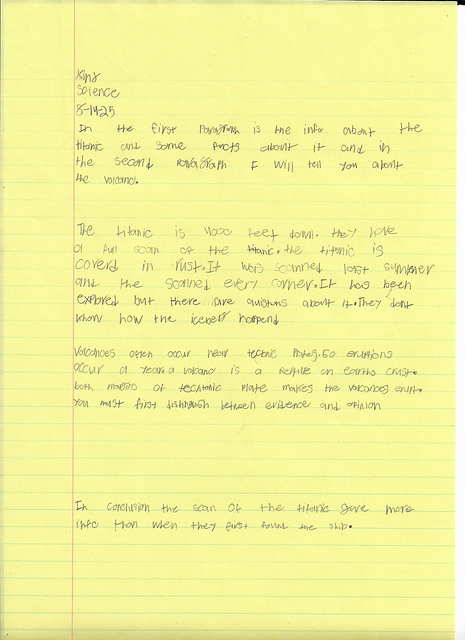 King
Science
8-14-25
In the first Paragraph is the info about the
titanic and some facts about it and in
the second Paragraph I will tell you about
the volcano.
The titanic is feet down. they have
a full scan of the titanic. the titanic is
coverd in rust. It was scanned last summer
and the scanned every corner. It has been
explored but there are quistons about it. They dont
know how the iceberg happend
Volcanoes often occur near tectonic Plates. 50 eruptions
occur a year. a volcano is a on earths crust.
both of tectatonic Plate makes the volcanoes erupt.
You must first distinguish between evidence and opinion
In conclusion the scan of the titanic gave more
info than when they first found the ship.